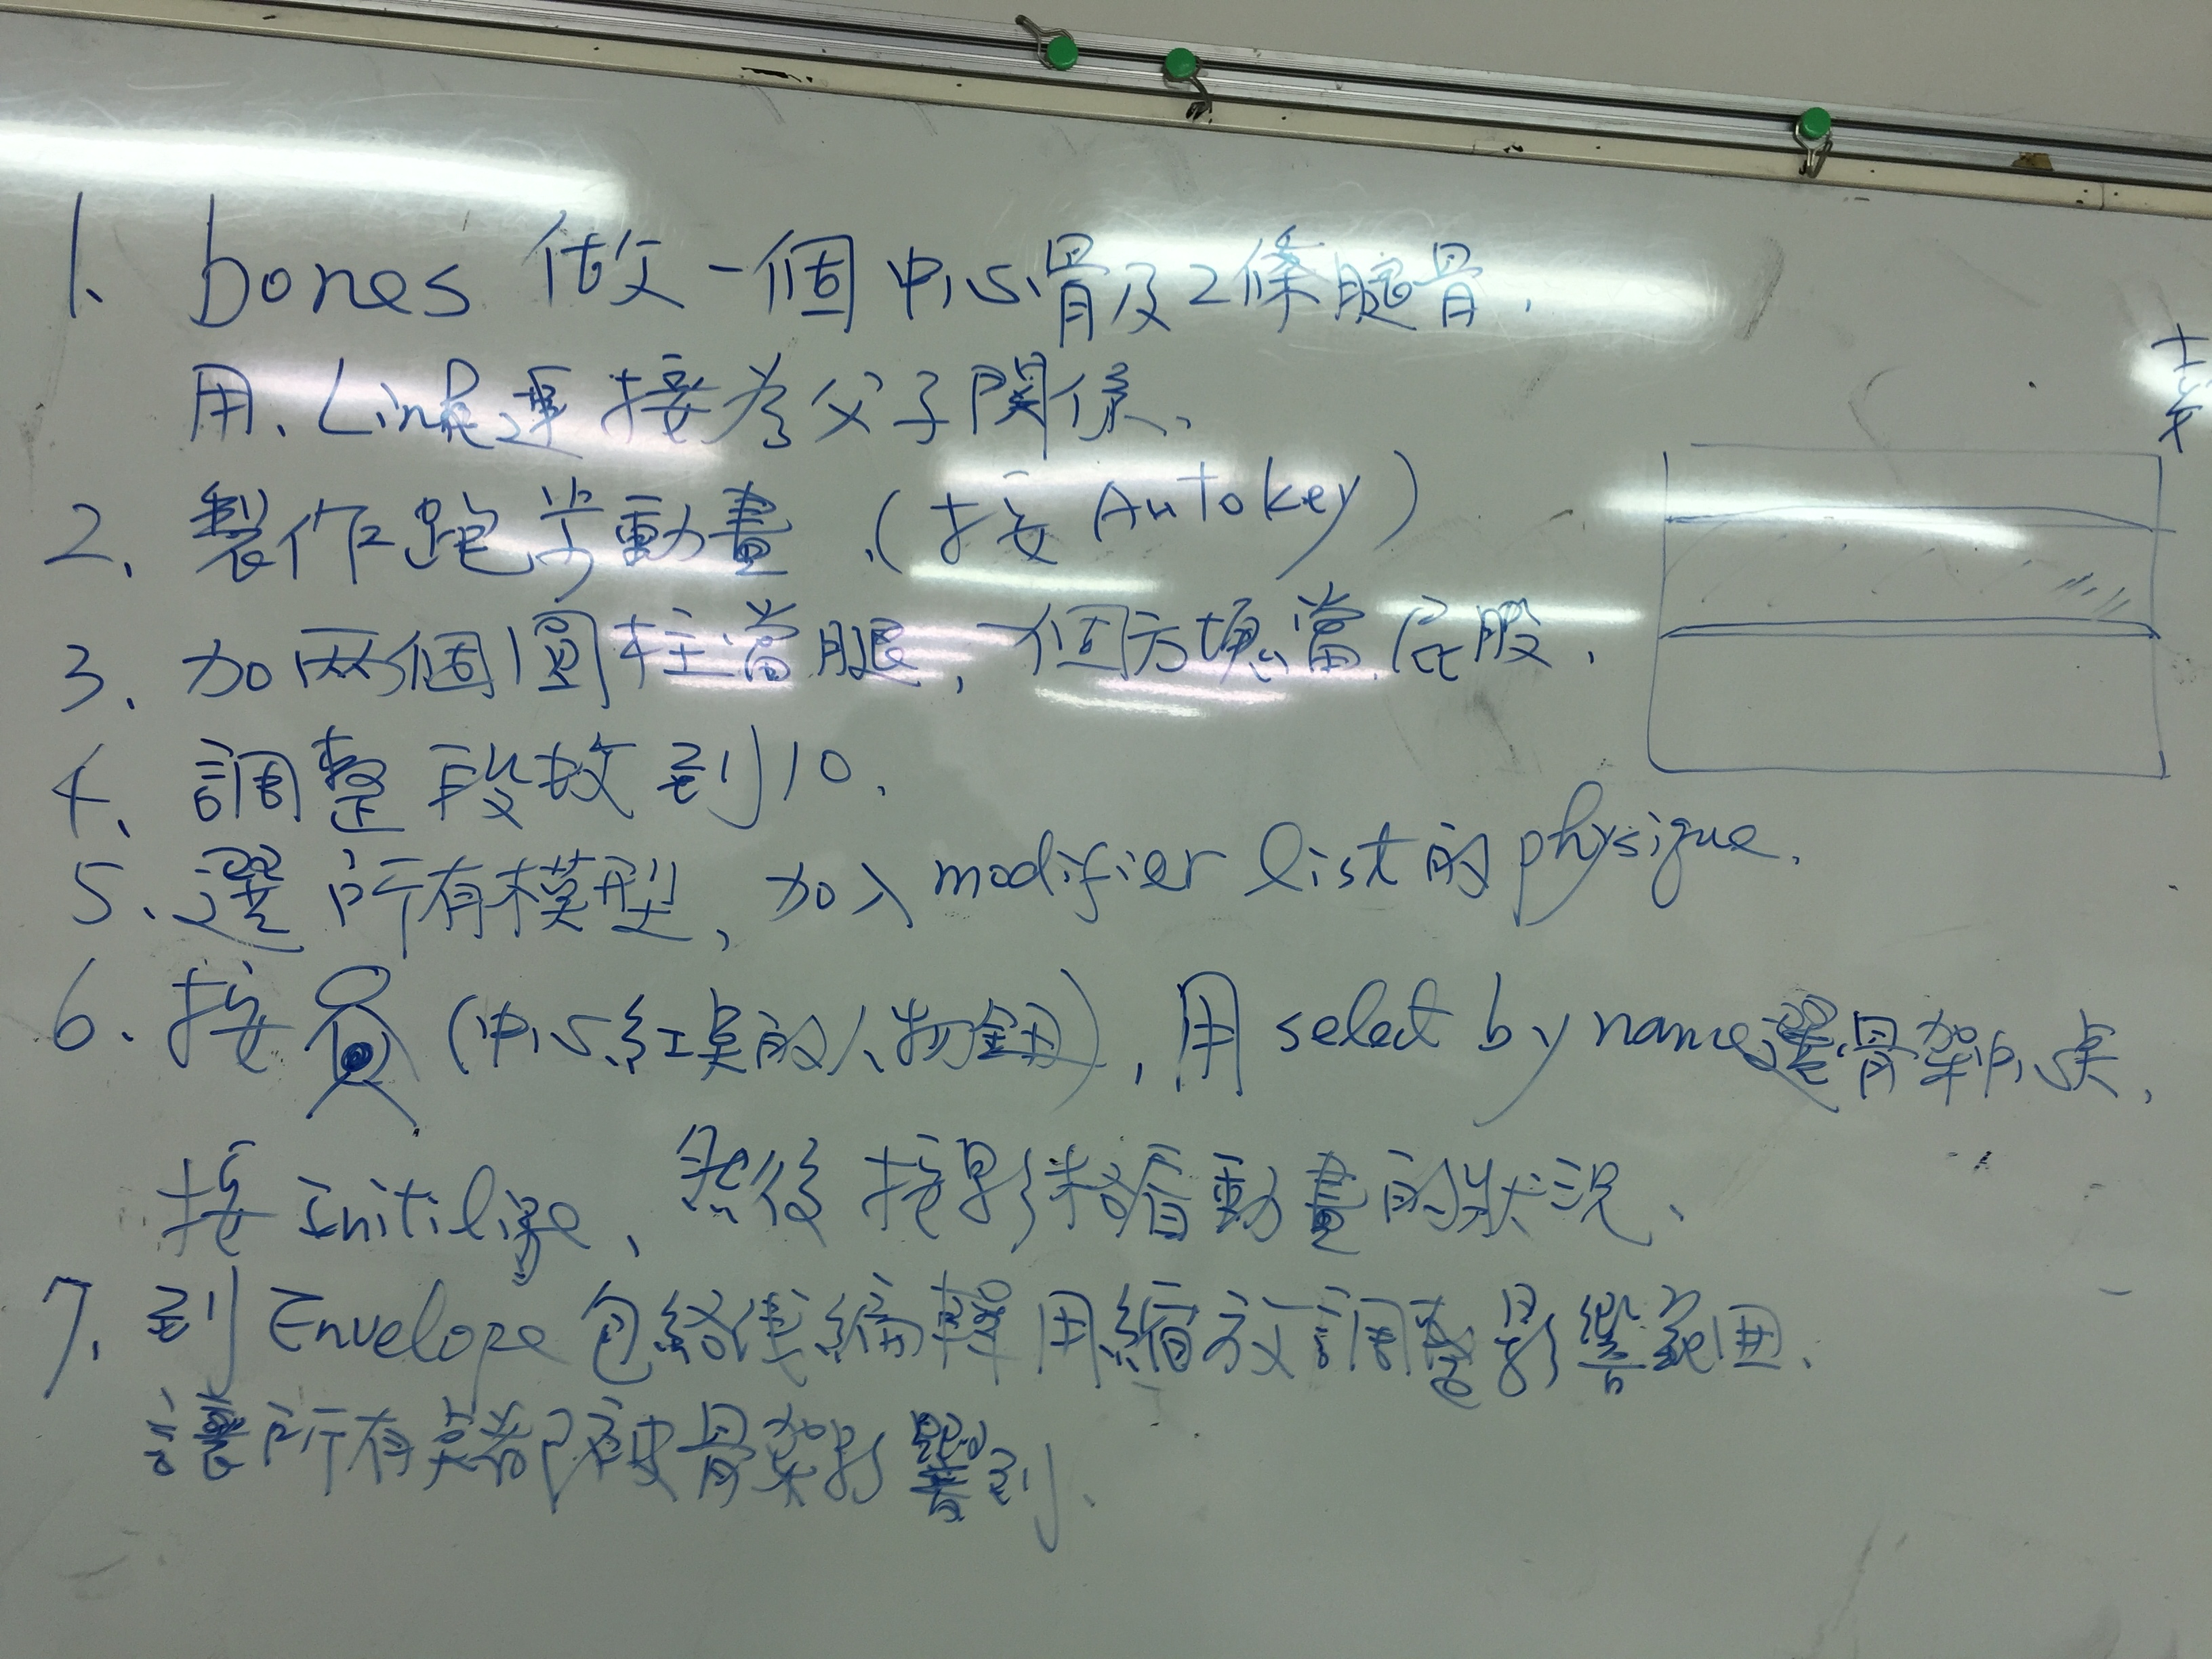 1、bones 做一個中心骨及2條腿骨，
用、Link連接為父子關係、
2、製作跑步動畫、(按 Autokey)
3、加兩個圓柱當腿，一個方塊當屁股，
4、調整段數到10、
5、選所有模型、加入 modifier list 的 physique、
6、按 (中心紅臭的人物鈕)，用 select by name選骨架中心臭、
按 initilize、然後按影格看動畫的狀況、
7、到 Envelope 包絡線編輯用縮放調整影響範囲、
讓所有臭都被骨架影響到、